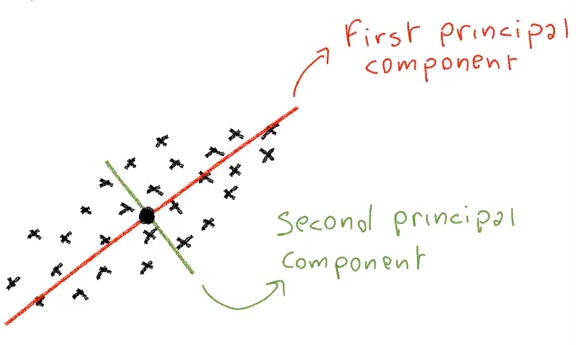 First principal
component
Second principal
component